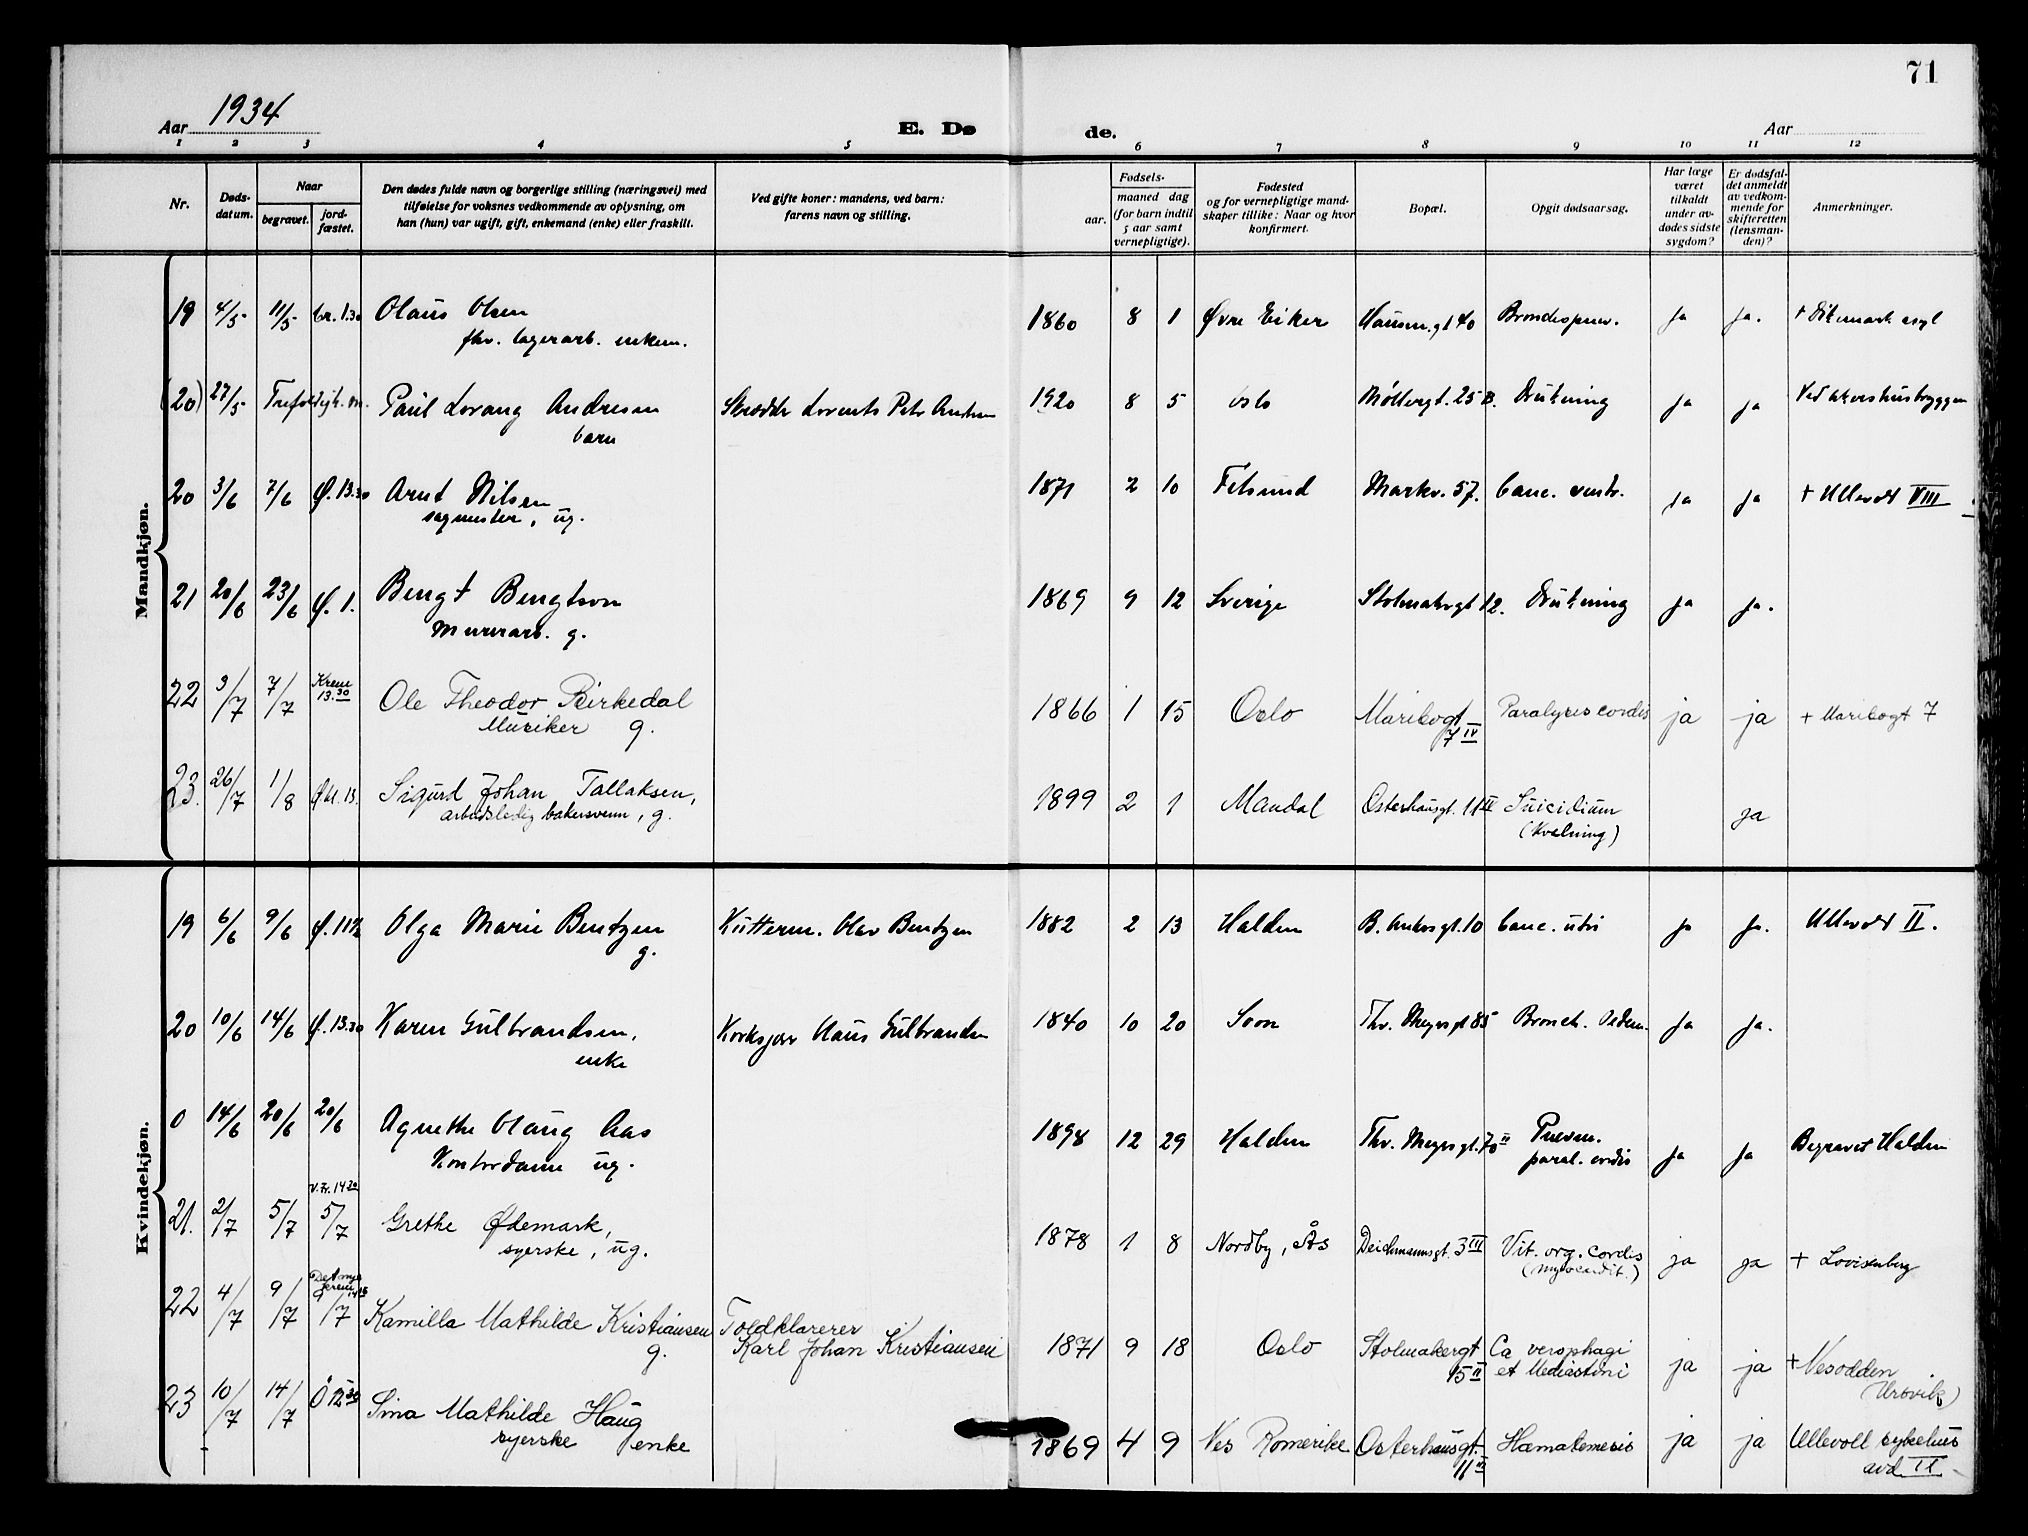 71
Aar 1934
E. Dø de.
Aar
1 2 3 4 5 6 7 8 9 10 11 12
Nr.
Døds-datum.
Naar
begravet.
jord-fæstet.
Den dødes fulde navn og borgerlige stilling (næringsvei) med
tilføielse for voksnes vedkommende av oplysning, om
han (hun) var ugift, gift, enkemand (enke) eller fraskilt.
Ved gifte koner: mandens, ved barn:
farens navn og stilling.
Fødsels-
aar.
maaned dag
(for barn indtil
5 aar samt
vernepligtige).
Fødested
og for vernepligtige mand-
skaper tillike: Naar og hvor
konfirmert.
Bopæl.
Opgit dødsaarsag.
Har læge
været
tilkaldt
under av-
dødes sidste
sygdom?
Er dødsfal-
det anmeldt
av vedkom-
mende for
skifteretten
(lensman-
den)?
Anmerkninger.
Mandkjøn.
19 4/5 11/5 Cr. 1.30 Olaus Olsen 1860 8 1 Øvre Eiker Hausm.gt 40 Ja Ja. + Dikemark asyl
fhv. lagerarb. enkem.
(20) 27/5 Paul Lorang Andresen 1920 8 5 Oslo Møllergt. 25 B. Drukning ja ja Ved Akershusbryggen
barn
20 3/6 7/6 Ø. 13.30 Arnt Nilsen 1871 2 10 Fetsund Markv. 57. Canc. ventr. ja ja + Ullevål VIII
sagmester, ug.
21 20/6 23/6 Ø. 1. Bengt Bengtson 1869 9 12 Sverige Stolmakergt 12. Drukning ja ja.
Murerarb. g.
22 3/7 7/7 Krem 13.30 Ole Theodor Birkedal 1866 1 15 Oslo Maribogt 7 IV Paralysis cordis ja ja + Maribogt 7
Musiker g.
23. 26/7 1/8 Økl. 13. Sigurd Johan Tallaksen, 1899 2 1 Mandal Osterhausgt. 11 II Suicidium ja
arbeidsledig bakersvenn, g. (Kvelning)
Kvindekjøn.
19 6/6 9/6 Ø. 11½ Olga Marie Bentzen Kutterm. Olav Bentzen 1882 2 13 Halden B. Ankersgt. 10 Canc. uteri ja ja. Ullevål II.
g.
20 10/6 14/6 Ø. 13.30 Karen Gulbrandsen, Korkskjær Claus Gulbrandsen 1840 10 20 Soon Thv. Meyersgt 85 Bronch. ja ja.
enke
0 14/6 20/6 20/6 Agnethe Olaug Aas 1898 12 29 Halden Thv. Meyersgt. 70 II Pnevm. ja ja Begravet Halden
Kontordame ug. paral. cordis
21. 2/7 5/7 V. Kr. 14 30 5/7 Grethe Ødemark, 1878 1 8 Nordby, Ås Deichmannsgt. 3 III Vit. org. cordis ja ja + Lovisenberg
syerske, ug. (myocardit.)
22 4/7 9/7 Det nye krem. 9/7 Kamilla Mathilde Kristiansen Toldklarerer 1871 9 18 Oslo Stolmakergt 15 II Ca oesophagi ja ja + Nesodden
g. Karl Johan Kristiansen et Mediastini (Ursvik)
23 10/7 14/7 Ö 12 30 Sina Mathilde Haug 1869 4 9 Nes Romerike Osterhausgt. Hæmatemesis ja ja Ullevoll sykehus
syerske enke 11 III avd. II